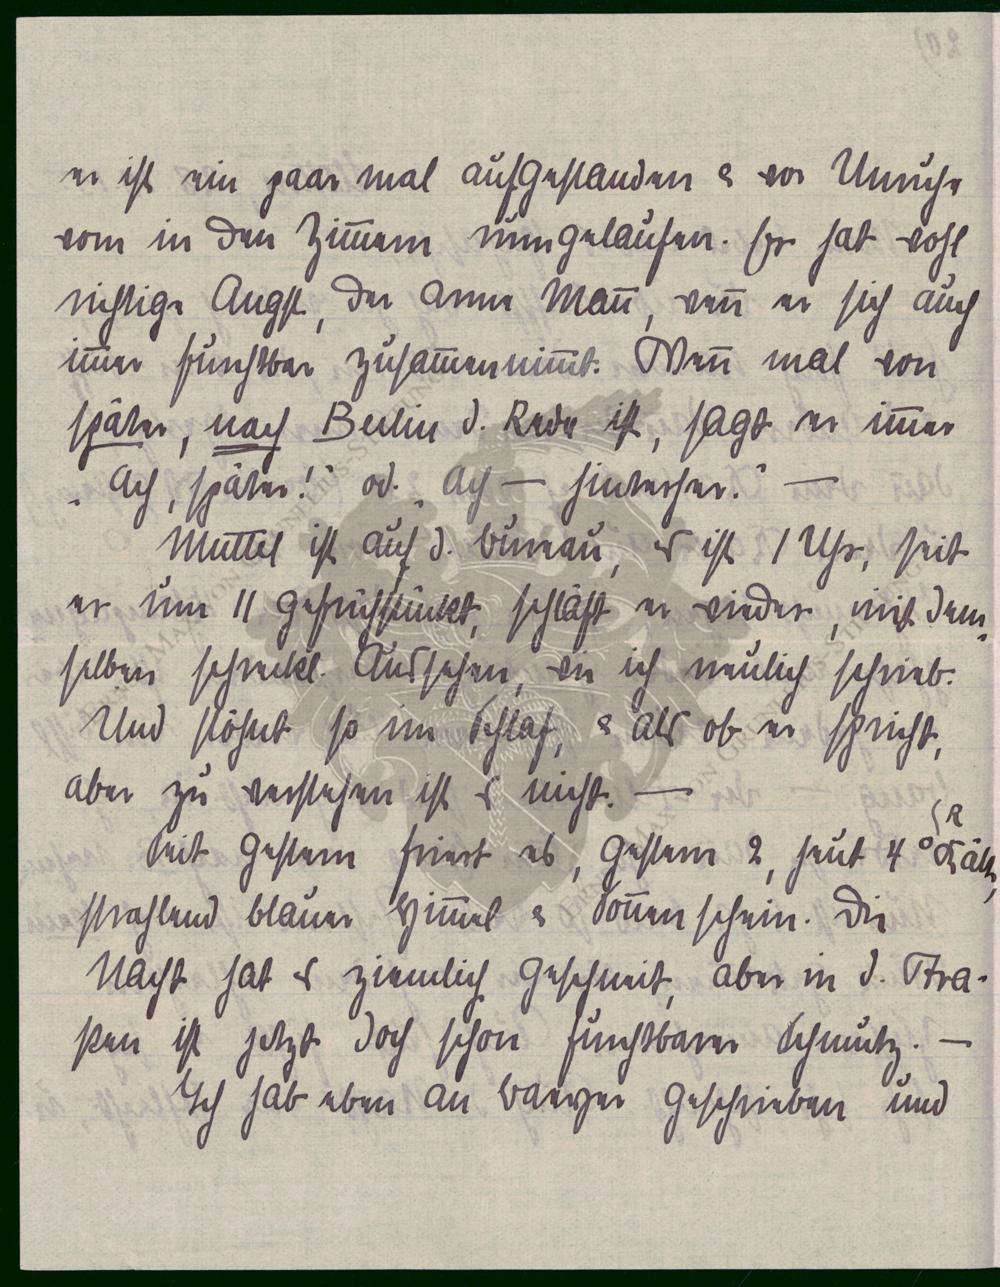 er ist ein paar mal aufgestanden & vor Unruhe
vorn in den Zim̅ern rumgelaufen. Er hat wohl
richtige Angst, der arme Man̅, wen̅ er sich auch
im̅er furchtbar zusam̅ennim̅t. Wen̅ mal von
später, nach Berlin d. Rede ist, sagt er im̅er
„Ach, später!" od. „Ach — hinterher." —
Muttel ist auf d. Bureau, es ist 1 Uhr, seit
er um 11 gefrühstückt, schläft er wieder, mit dem-
selben schreckl. Aussehen, wie ich neulich schrieb.
Und stöhnt so im Schlaf, & als ob er spricht,
aber zu verstehen ist es nicht. —
Seit gestern friert es, gestern 2, heut 4° R Kälte,
strahlend blauer Him̅el & Son̅enschein. Die
Nacht hat es ziemlich geschneit, aber in d. Stra-
ßen ist jetzt doch schon furchtbarer Schmutz. —
Ich hab eben an geschrieben und